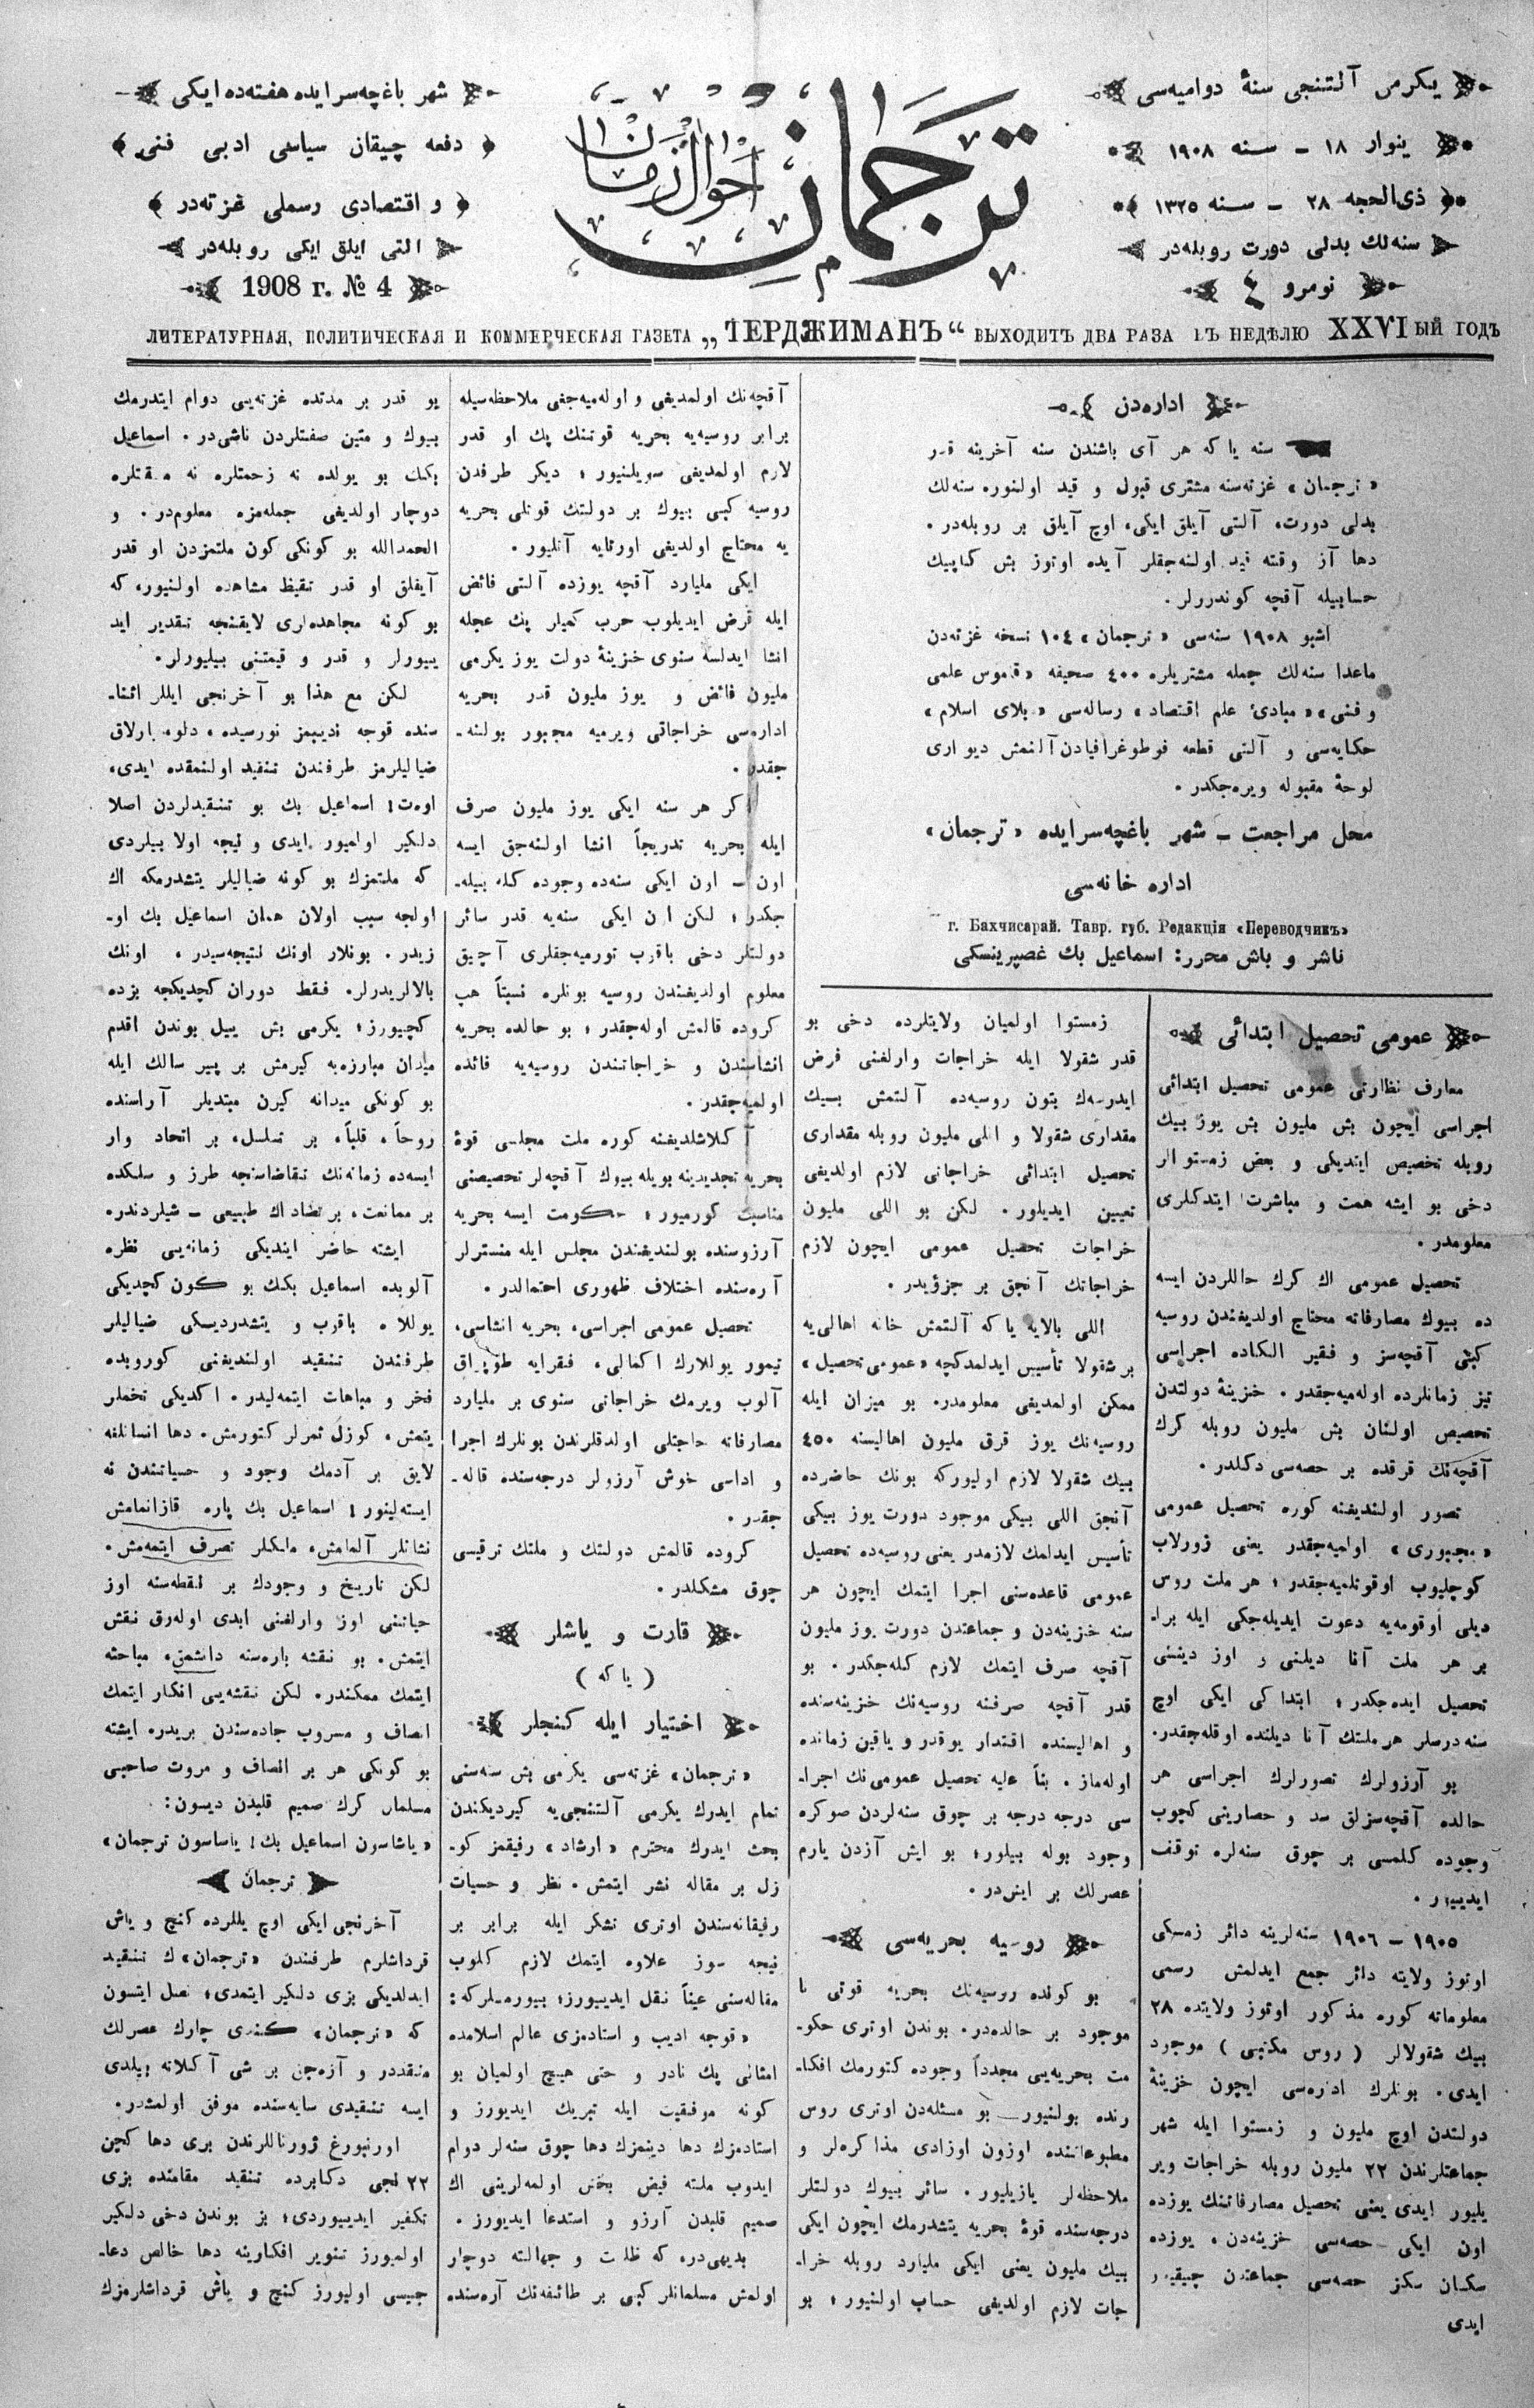 يكرمى آلتنجى سنۀ دواميه‌سى
ينوار ١٨ – سنه ١٩٠٨
ذى‌الحجه ٢٨ – سنه ١٣٢٥
سنه‌لك بدلى دورت روبله‌در
نومرو ٤
ترجمان
احوال زمان
شهر باغچه‌سرايده هفته‌ده ايكى
دفعه چيقان سياسى ادبى فنى
و اقتصادى رسملى غزته‌در
التى ايلق ايكى روبله‌در
1908 г. № 4
ЛИТЕРАТУРНАЯ, ПОЛИТИЧЕСКАЯ И КОММЕРЧЕСКАЯ ГАЗЕТА „ТЕРДЖИМАНЪ“ ВЫХОДИТЪ ДВА РАЗА ВЪ НЕДѢЛЮ XXVIЫЙ ГОДЪ
اداره‌دن
سنه يا كه هر آى باشندن سنه آخرينه قدر
«ترجمان» غزته‌سنه مشترى قبول و قيد اولنور، سنه‌لك
بدلى دورت، آلتى آيلق ايكى، اوچ آيلق بر روبله‌در.
دها آز وقته قيد اولنه‌جقلر آيده اوتوز بش كاپيك
حسابيله آقچه كوندررلر.
اشبو ١٩٠٨ سنه‌سى «ترجمان» ١٠٤ نسخه غزته‌دن
ماعدا سنه‌لك جمله مشتريلره ٤٠٠ صحيفه «قاموس علمى
و فنى» «مبادئ علم اقتصاد» رساله‌سى «بلاى اسلام»
حكايه‌سى و آلتى قطعه فوطوغرافيادن آلنمش ديوارى
لوحۀ مقبوله ويره‌جكدر.
محل مراجعت – شهر باغچه‌سرايده «ترجمان»
اداره خانه‌سى
г. Бахчисарай. Тавр. губ. Редакція «Переводчикъ»
ناشر و باش محرر: اسماعيل بك غصپرينسكى
عمومى تحصيل ابتدائى
معارف نظارتى عمومى تحصيل ابتدائى
اجراسى ايچون بش مليون بش يوز بيك
روبله تخصيص ايتديكى و بعض زمستوالر
دخى بو ايشه همت و مباشرت ايتدكلرى
معلومدر.
تحصيل عمومى اك كرك حاللردن ايسه
ده بيوك مصارفاته محتاج اولديغندن روسيه
كبى آقچه‌سز و فقير الكاده اجراسى
تيز زمانلرده اوله‌ميه‌جقدر. خزينۀ دولتدن
تخصيص اولنان بش مليون روبله كرك
آقچه‌نك قرقده بر حصه‌سى دكلدر.
تصور اولنديغنه كوره تحصيل عمومى
«مجبورى» اولميه‌جقدر يعنى زورلاب
كوچليوب اوقوتلميه‌جقدر؛ هر ملت روس
ديلى اوقومه‌يه دعوت ايديله‌جكى ايله برا-
بر هر ملت آنا ديلنى و اوز دينينى
تحصيل ايده‌جكدر؛ ابتداكى ايكى اوچ
سنه درسلر هر ملتك آنا ديلنده اوقله‌جقدر.
بو آرزولرك تصورلرك اجراسى هر
حالده آقچه‌سزلق سد و حصارينى كچوب
وجوده كلمسى بر چوق سنه‌لره توقف
ايدييور.
١٩٠٥ – ١٩٠٦ سنه‌لرينه دائر زمسكى
اوتوز ولايته دائر جمع ايدلمش رسمى
معلوماته كوره مذكور اوتوز ولايتده ٢٨
بيك شقولالر (روس مكتبى) موجود
ايدى. بونلرك اداره‌سى ايچون خزينۀ
دولتدن اوچ مليون و زمستوا ايله شهر
جماعتلرندن ٢٢ مليون روبله خراجات وير
يليور ايدى يعنى تحصيل مصارفاتنك يوزده
اون ايكى حصه‌سى خزينه‌دن، يوزده
سكسان سكز حصه‌سى جماعتدن چيقيور
ايدى
زمستوا اولميان ولايتلرده دخى بو
قدر شقولا ايله خراجات وارلغنى فرض
ايدرسه‌ك بتون روسيه‌ده آلتمش بيك
مقدارى شقولا و اللى مليون روبله مقدارى
تحصيل ابتدائى خراجاتى لازم اولديغى
تعيين ايديلور. لكن بو اللى مليون
خراجات تحصيل عمومى ايچون لازم
خراجاتك آنجق بر جزؤيدر.
اللى بالايه يا كه آلتمش خانه اهالى‌يه
بر شقولا تأسيس ايدلمدكچه «عمومى تحصيل»
ممكن اولمديغى معلومدر. بو ميزان ايله
روسيه‌نك يوز قرق مليون اهاليسنه ٤٥٠
بيك شقولا لازم اوليوركه بونك حاضرده
آنجق اللى بيكى موجود دورت يوز بيكى
تأسيس ايدلمك لازمدر يعنى روسيه‌ده تحصيل
عمومى قاعده‌سنى اجرا ايتمك ايچون هر
سنه خزينه‌دن و جماعتدن دورت يوز مليون
آقچه صرف ايتمك لازم كله‌جكدر. بو
قدر آقچه صرفنه روسيه‌نك خزينه‌سنده
و اهاليسنده اقتدار يوقدر و ياقين زمانده
اوله‌ماز. بناً عليه تحصيل عمومى‌نك اجرا-
سى درجه درجه بر چوق سنه‌لردن صوكره
وجود بوله بيلور؛ بو ايش آزدن يارم
عصرلك بر ايش‌در.
روسيه بحريه‌سى
بو كونده روسيه‌نك بحريه قوتى نا
موجود بر حالده‌در. بوندن اوترى حكو-
مت بحريه‌يى مجدداً وجوده كتورمك افكا-
رنده بولنيور. بو مسئله‌دن اوترى روس
مطبوعاتنده اوزون اوزادى مذاكره‌لر و
ملاحظه‌لر يازيليور. سائر بيوك دولتلر
درجه‌سنده قوۀ بحريه يتشدرمك ايچون ايكى
بيك مليون يعنى ايكى مليارد روبله خرا-
جات لازم اولديغى حساب اولنيور؛ بو
آقچه‌نك اولمديغى و اوله‌ميه‌جغى ملاحظه‌سيله
برابر روسيه‌يه بحريه قوتنك پك او قدر
لازم اولمديغى سويلنيور؛ ديكر طرفدن
روسيه كبى بيوك بر دولتك قوتلى بحريه
يه محتاج اولديغى اورتايه آتليور.
ايكى مليارد آقچه يوزده آلتى فائض
ايله قرض ايديلوب حرب كميلر پك عجله
انشا ايدلسه سنوى خزينۀ دولت يوز يكرمى
مليون فائض و يوز مليون قدر بحريه
اداره‌سى خراجاتى ويرميه مجبور بولنه-
جقدر.
اكر هر سنه ايكى يوز مليون صرف
ايله بحريه تدريجاً انشا اولنه‌جق ايسه
اون – اون ايكى سنه‌ده وجوده كله بيله-
جكدر؛ لكن اون ايكى سنه‌يه قدر سائر
دولتلر دخى باقوب تورميه‌جقلرى آچيق
معلوم اولديغندن روسيه بونلره نسبتاً هپ
كروده قالمش اوله‌جقدر؛ بو حالده بحريه
انشاسندن و خراجاتندن روسيه‌يه فائده
اولميه‌جقدر.
آكلاشلديغنه كوره ملت مجلسى قوۀ
بحريه تجديدينه بويله بيوك آقچه‌لر تخصيصنى
مناسبت كورميور؛ حكومت ايسه بحريه
آرزوسنده بولنديغندن مجلس ايله منسترلر
آره‌سنده اختلاف ظهورى احتمالدر.
تحصيل عمومى اجراسى، بحريه انشاسى،
تيمور يوللارك اكمالى، فقرايه طوپراق
آلوب ويرمك خراجاتى سنوى بر مليارد
مصارفاته حاجتلى اولدقلرندن بونلرك اجرا
و اداسى خوش آرزولر درجه‌سنده قاله-
جقدر.
كروده قالمش دولتك و ملتك ترقيسى
چوق مشكلدر.
قارت و ياشلر
(يا كه)
اختيار ايله كنجلر
«ترجمان» غزته‌سى يكرمى بش سنه‌سنى
تمام ايدرك يكرمى آلتنجى‌يه كيرديكندن
بحث ايدرك محترم «ارشاد» رفيقمز كو-
زل بر مقاله نشر ايتمش. نظر و حسيات
رفيقانه‌سندن اوترى تشكر ايله برابر بر
نيجه سوز علاوه ايتمك لازم كلوب
مقاله‌سنى عيناً نقل ايدييورز؛ بيورملركه:
«قوجه اديب و استادمزى عالم اسلامده
امثالى پك نادر و حتى هيچ اولميان بو
كونه موفقيت ايله تبريك ايديورز و
استادمزك دها دينمزك دها چوق سنه‌لر دوام
ايدوب ملته فيض بخش اولمه‌لرينى اك
صميم قلبدن آرزو و استدعا ايديورز.
بديهى‌در، كه ظلمت و جهالته دوچار
اولمش مسلمانلر كبى بر طائفه‌نك آره‌سنده
بو قدر بر مدتده غزته‌يى دوام ايتدرمك
بيوك و متين صفتلردن ناشى‌در. اسماعيل
بكك بو يولده نه زحمتلره نه مشقتلره
دوچار اولديغى جمله‌مزه معلوم‌در. و
الحمدالله بو كونكى كون ملتمزدن او قدر
آيقلق او قدر تيقظ مشاهده اولنيور، كه
بو كونه مجاهده‌لرى لايقنجه تقدير ايد
ييورلر و قدر و قيمتنى بيليورلر.
لكن مع هذا بو آخرنجى ايللر اثنا-
سنده قوجه اديبمز نورسيده، دلو، بارلاق
ضياليلرمز طرفندن تنقيد اولنمقده ايدى،
اوت! اسماعيل بك بو تنقيدلردن اصلا
دلكير اولميور ايدى و نيجه اولا بيلردى
كه ملتمزك بو كونه ضياليلر يتشدرمكه اك
اولجه سبب اولان همان اسماعيل بك او-
زيدر. بونلار اونك نتيجه‌سيدر، اونك
بالالريدرلر. فقط دوران كچديكجه بزده
كچيورز؛ يكرمى بش ييل بوندن اقدم
ميدان مبارزه‌يه كيرمش بر پير سالك ايله
بو كونكى ميدانه كيرن مبتديلر آراسنده
روحاً، قلباً، بر تسلسل، بر اتحاد وار
ايسه‌ده زمانه‌نك تقاضاسنجه طرز و سلكده
بر ممانعت، بر تضاد اك طبيعى – شيلردندر.
ايشته حاضر اينديكى زمانه‌يى نظره
آلوبده اسماعيل بكك بو كون كچديكى
يوللاه باقوب و يتشدرديكى ضياليلر
طرفندن تنقيد اولنديغنى كوروبده
فخر و مباهات ايتمه‌ليدر. اكديكى تخملر
يتمش، كوزل ثمرلر كتورمش. دها انسانلغه
لايق بر آدمك وجود و حسياتندن نه
ايسته‌لينور! اسماعيل بك پاره قازانمامش
نشانلر آلمامش، ملكلر تصرف ايتمه‌مش.
لكن تاريخ و وجودك بر نقطه‌سنه اوز
حياتنى اوز وارلغنى ابدى اوله‌رق نقش
ايتمش. بو نقشه باره‌سنه دانشمق، مباحثه
ايتمك ممكندر. لكن نقشه‌يى افكار ايتمك
انصاف و مسروب جاده‌سندن بريدر، ايشته
بو كونكى هر بر انصاف و مروت صاحبى
مسلمان كرك صميم قلبدن ديسون:
«ياشاسون اسماعيل بك! ياساسون ترجمان»
ترجمان
آخرنجى ايكى اوچ يللرده كنج و ياش
قرداشلرم طرفندن «ترجمان»ك تنقيد
ايدلديكى بزى دلكير ايتمدى؛ نصل ايتسون
كه «ترجمان» كندى چارك عصرلك
منقددر و آزه‌جق بر شى آكلاته بيلدى
ايسه تنقيدى سايه‌سنده موفق اولمشدر.
اورنبورغ ژورناللرندن برى دها كچن
٢٢ نجى دكابرده تنقيد مقامنده بزى
تكفير ايدييوردى؛ بز بوندن دخى دلكير
اولميورز تنوير افكارينه دها خالص دعا-
جيسى اوليورز كنج و ياش قرداشلرمزك